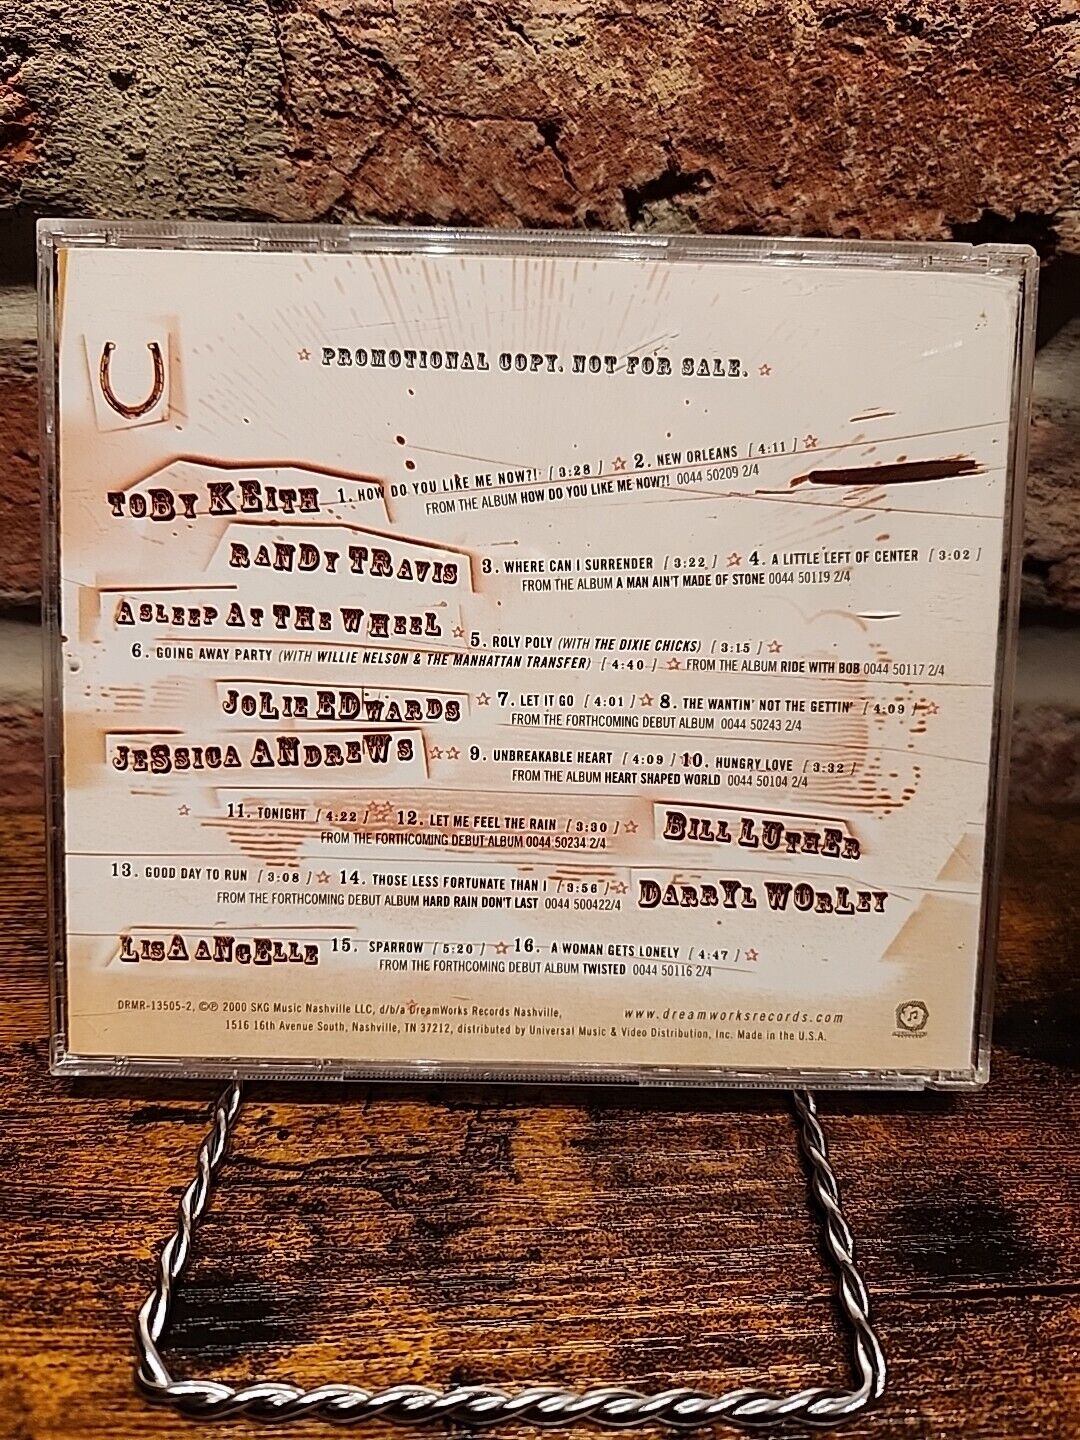 ☆ PROMOTIONAL COPY. NOT FOR SALE. ☆
TOBY KEITH 1. HOW DO YOU LIKE ME NOW?! [3:28] ☆ 2. NEW ORLEANS [4:11] ☆
FROM THE ALBUM HOW DO YOU LIKE ME NOW?! 0044 50209 2/4
RANDY TRAVIS 3. WHERE CAN I SURRENDER [3:22] ☆ 4. A LITTLE LEFT OF CENTER [3:02]
FROM THE ALBUM A MAN AIN'T MADE OF STONE 0044 50119 2/4
ASLEEP AT THE WHEEL ☆ 5. ROLY POLY (WITH THE DIXIE CHICKS) [3:15] ☆
6. GOING AWAY PARTY (WITH WILLIE NELSON & THE MANHATTAN TRANSFER) [4:40] ☆ FROM THE ALBUM RIDE WITH BOB 0044 50117 2/4
JOLIE EDWARDS ☆ 7. LET IT GO [4:01] ☆ 8. THE WANTIN' NOT THE GETTIN' [4:09] ☆
FROM THE FORTHCOMING DEBUT ALBUM 0044 50243 2/4
JESSICA ANDREWS ☆☆ 9. UNBREAKABLE HEART [4:09] 10. HUNGRY LOVE [3:32]
FROM THE ALBUM HEART SHAPED WORLD 0044 50104 2/4
☆ 11. TONIGHT [4:22] ☆☆ 12. LET ME FEEL THE RAIN [3:30] ☆ BILL LUTHER
FROM THE FORTHCOMING DEBUT ALBUM 0044 50234 2/4
13. GOOD DAY TO RUN [3:08] ☆ 14. THOSE LESS FORTUNATE THAN I [3:56] ☆ DARRYL WORLEY
FROM THE FORTHCOMING DEBUT ALBUM HARD RAIN DON'T LAST 0044 500422/4
LISA ANGELLE 15. SPARROW [5:20] ☆ 16. A WOMAN GETS LONELY [4:47] ☆
FROM THE FORTHCOMING DEBUT ALBUM TWISTED 0044 50116 2/4
DRMR-13505-2, ©℗ 2000 SKG Music Nashville LLC, d/b/a DreamWorks Records Nashville, www.dreamworksrecords.com
1516 16th Avenue South, Nashville, TN 37212, distributed by Universal Music & Video Distribution, Inc. Made in the U.S.A.